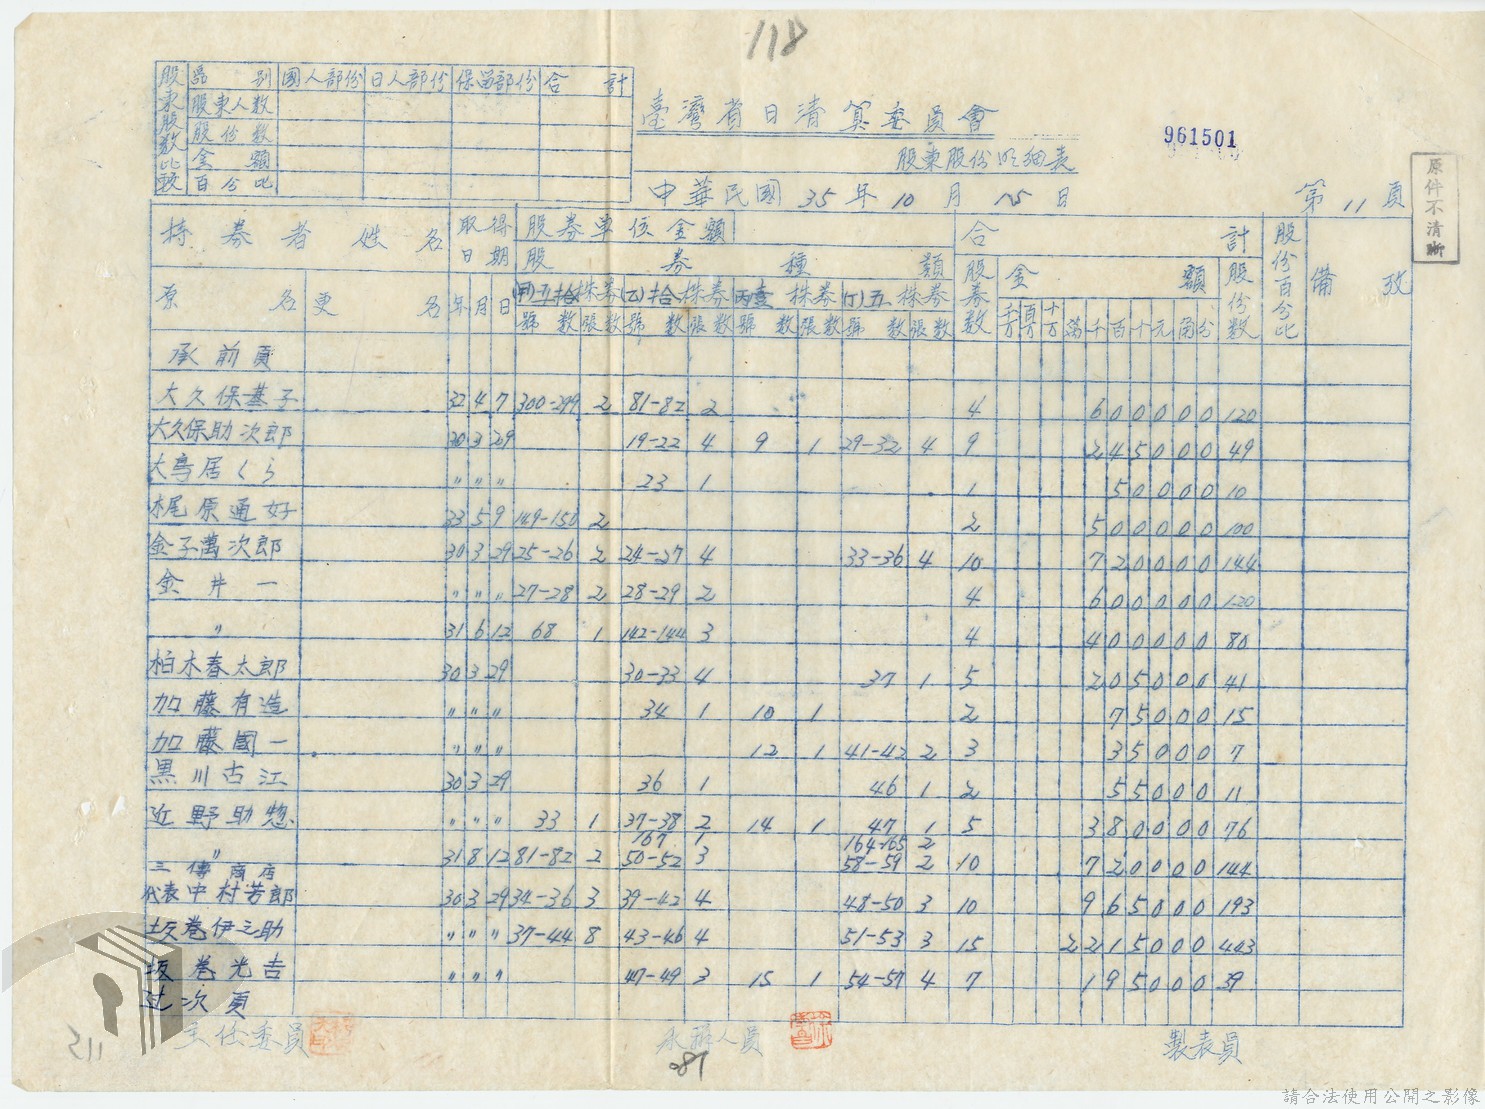 118
股東股數比較
區別 國人部份 日人部份 保留部份 合計
股東人數
股份數
金額
百分比
臺灣省日清算委員會
961501
股東股份明細表
原件不清晰
中華民國 35 年 10 月 15 日
第 11 頁
持券者姓名 取得日期 股券單位金額 合計 股份百分比 備攷
股券種類 股券數 金額 股份數
原名 更名 年 月 日 (甲)五拾株券 (乙)拾株券 丙壹株券 (丁)五株券
號數 張數 號數 張數 號數 張數 號數 張數 千万 百万 十万 萬 千 百 十 元 角 分
承前頁
大久保基子 32 4 7 300-299 2 81-82 2 4 6 0 0 0 0 0 120
大久保助次郎 30 3 29 19-22 4 9 1 29-32 4 9 2 4 5 0 0 0 49
大鳥居くら 〃 〃 〃 23 1 1 5 0 0 0 0 10
梶原通好 33 5 9 149-150 2 2 5 0 0 0 0 0 100
金子萬次郎 30 3 29 25-26 2 24-27 4 33-36 4 10 7 2 0 0 0 0 144
金井一 〃 〃 〃 27-28 2 28-29 2 4 6 0 0 0 0 0 120
〃 31 6 12 68 1 142-144 3 4 4 0 0 0 0 0 80
柏木春太郎 30 3 29 30-33 4 37 1 5 2 0 5 0 0 0 41
加藤有造 〃 〃 〃 34 1 10 1 2 7 5 0 0 0 15
加藤國一 〃 〃 〃 12 1 41-42 2 3 3 5 0 0 0 7
黒川古江 30 3 29 36 1 46 1 2 5 5 0 0 0 11
近野助惣 〃 〃 〃 33 1 37-38 2 14 1 47 1 5 3 8 0 0 0 0 76
167 1 164-165 2
〃 31 8 12 81-82 2 50-52 3 58-59 2 10 7 2 0 0 0 0 144
三傳商店
代表中村芳郎 30 3 29 34-36 3 39-42 4 48-50 3 10 9 6 5 0 0 0 193
坂巻伊之助 〃 〃 〃 37-44 8 43-46 4 51-53 3 15 2 2 1 5 0 0 0 443
坂巻光吉 〃 〃 〃 47-49 3 15 1 54-57 4 7 1 9 5 0 0 0 39
过次頁
主任委員
承辦人員
製表員
211
87
請合法使用公開之影像